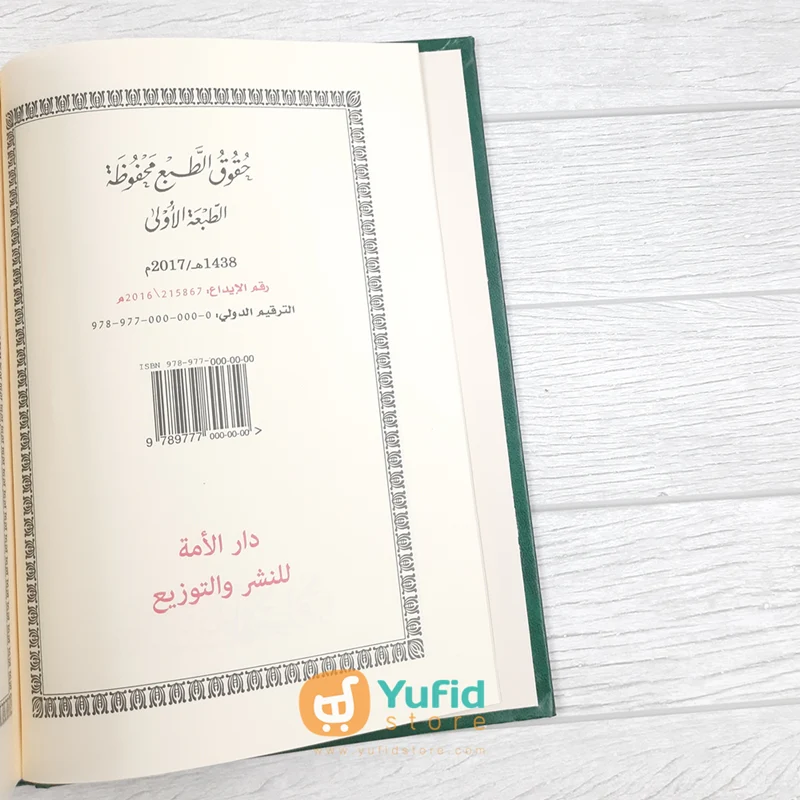 حُقُوقُ الطَّبْعِ مَحْفُوظَة
الطَّبْعَة الأُولَى
1438هـ/2017م
رقم الإيداع: 215867\2016م
الترقيم الدولي: 978-977-000-000-0
ISBN 978-977-000-00-00
9 789777 000-00-00 >
دار الأمة
للنشر والتوزيع
Yufid
store
www.yufidstore.com